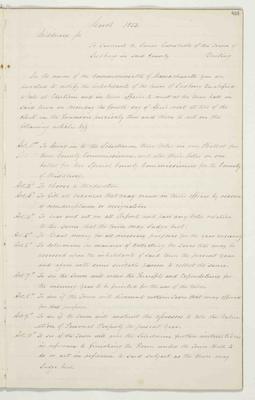 March 1853
Middlesex ss
To Constable of the Town of
in said County Greeting
In the name of the Commonwealth of Massachusetts you are
to notify the inhabitants of the town of qualified
to vote in Elections and in Town affairs to meet at the Town hall in
said town on Monday the fourth day of April next at ten of the
clock in the forenoon precisely then and there to act on the
following articles Viz
Art. 1st To bring in to the Selectmen their votes on one Ballot for
three County Commissioners, and also their votes on one
ballot for two Special County Commissioners for the County
of Middlesex
Art. 2d To choose a Moderator
Art. 3d To fill all vacancies that may occur in their offices by reason
of nonacceptance or resignation
Art. 4th To hear and act on all Reports and pass any votes relative
to the same that the town may Judge best
Art. 5th To Grant money for all necessary purposes for the year ensuing
Art. 6th To determine the manner of Collecting the Taxes that may be
assessed upon the inhabitants of said Town the present year
and agree with some suitable person to collect the same
Art. 7th To see if the Town will order the Receipts and Expenditures for
the ensuing year to be printed for the use of the town
Art. 8th To see if the Town will discount certain Taxes that may be offered
for that purpose
Art. 9th To see if the Town will instruct the assessors to take the Valuation
of Personal Property the present year
Art. 10th To see if the Town will give the Selectmen further instructions
in reference to finishing the Room under the Town Hall &
do or act in reference to said subject as the town may
Judge best